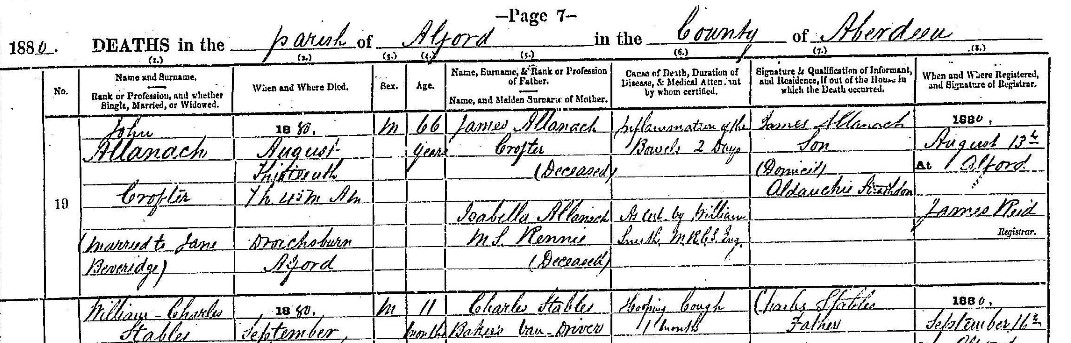 —Page 7—
1880. DEATHS in the parish of Alford in the County of Aberdeen
(1.) (2.) (3.) (4.) (5.) (6.) (7.) (8.)
No.
Name and Surname,
Rank or Profession, and whether
Single, Married, or Widowed.
When and Where Died.
Sex.
Age.
Name, Surname, & Rank or Profession
of Father.
Name, and Maiden Surname of Mother.
Cause of Death, Duration of
Disease, & Medical Attendant
by whom certified.
Signature & Qualification of Informant,
and Residence, if out of the House in
which the Death occurred.
When and Where Registered,
and Signature of Registrar.
19
John
Allanach
Crofter
(Married to Jane
Beveridge)
1880.
August
Thirteenth
7h. 45m AM
Drochsburn
Alford
M
66
years
James Allanach
Crofter
(Deceased)
Isabella Allanach
M.S. Rennie
(Deceased)
Inflammation of the
Bowels 2 Days
As cert. by William
Smith M.R.C.S. Eng.
James Allanach
Son
(Domicil)
Strathdon
1880.
August 13th
At Alford
James Reid
Registrar.
William Charles
Stables
1880.
September,
M
11
months
Charles Stables
Baker's Van-Driver
Hooping Cough
1 month
Charles Stables
Father
1880.
September 16th